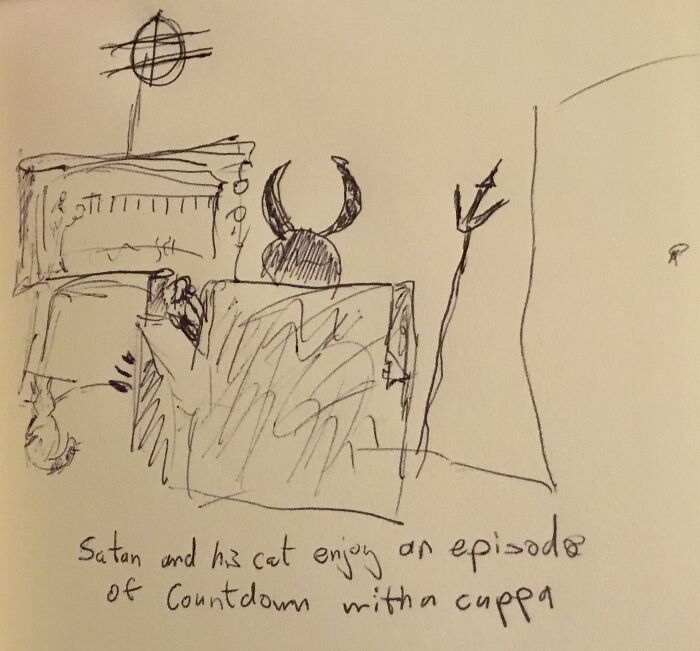 Satan and his cat enjoy an episode
of Countdown with a cuppa